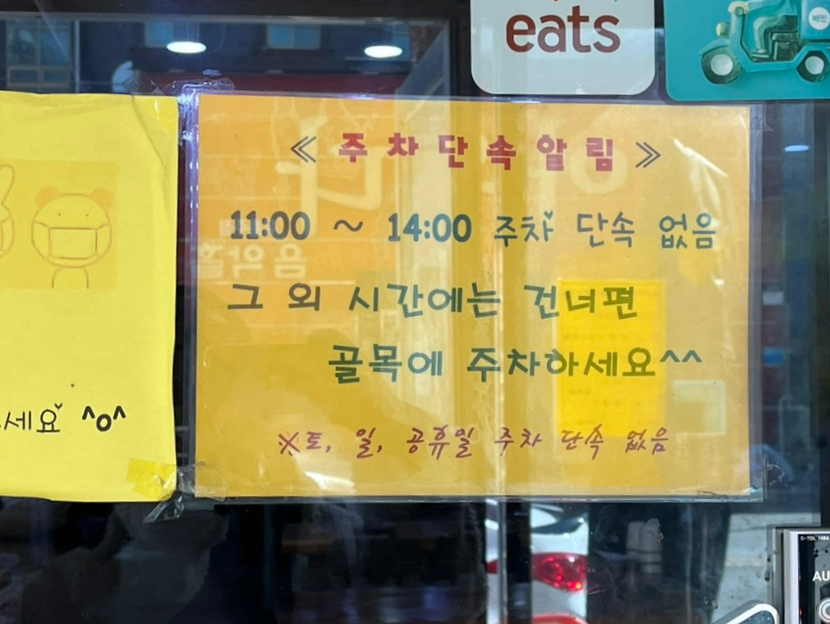 eats
배민
≪ 주차단속알림 ≫
11:00 ~ 14:00 주차 단속 없음
그 외 시간에는 건너편
골목에 주차하세요^^
※토, 일, 공휴일 주차 단속 없음
세요 ^o^
음악홀
AU